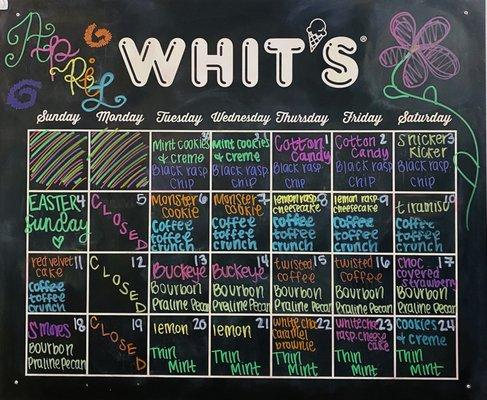 April
WHIT'S®
Sunday Monday Tuesday Wednesday Thursday Friday Saturday
30
Mint cookies
& creme
Black rasp
chip
31
Mint cookies
& creme
Black rasp
chip
1
Cotton
Candy
Black rasp
chip
2
Cotton
Candy
Black rasp
chip
3
Snicker
Kicker
Black rasp
chip
4
EASTER
Sunday
5
CLOSED
6
Monster
cookie
Coffee
toffee
crunch
7
Monster
cookie
Coffee
toffee
crunch
8
lemon rasp
cheesecake
Coffee
toffee
crunch
9
lemon rasp
cheesecake
Coffee
toffee
crunch
10
tiramisu
Coffee
toffee
crunch
11
red velvet
cake
Coffee
toffee
crunch
12
CLOSED
13
Buckeye
Bourbon
Praline Pecan
14
Buckeye
Bourbon
Praline Pecan
15
twisted
coffee
Bourbon
Praline Pecan
16
twisted
coffee
Bourbon
Praline Pecan
17
choc
covered
strawberry
Bourbon
Praline Pecan
18
S'mores
Bourbon
Praline Pecan
19
CLOSED
20
lemon
Thin
Mint
21
lemon
Thin
Mint
22
white choc
caramel
brownie
Thin
Mint
23
white choc
rasp cheese
cake
Thin
Mint
24
cookies
& creme
Thin
Mint